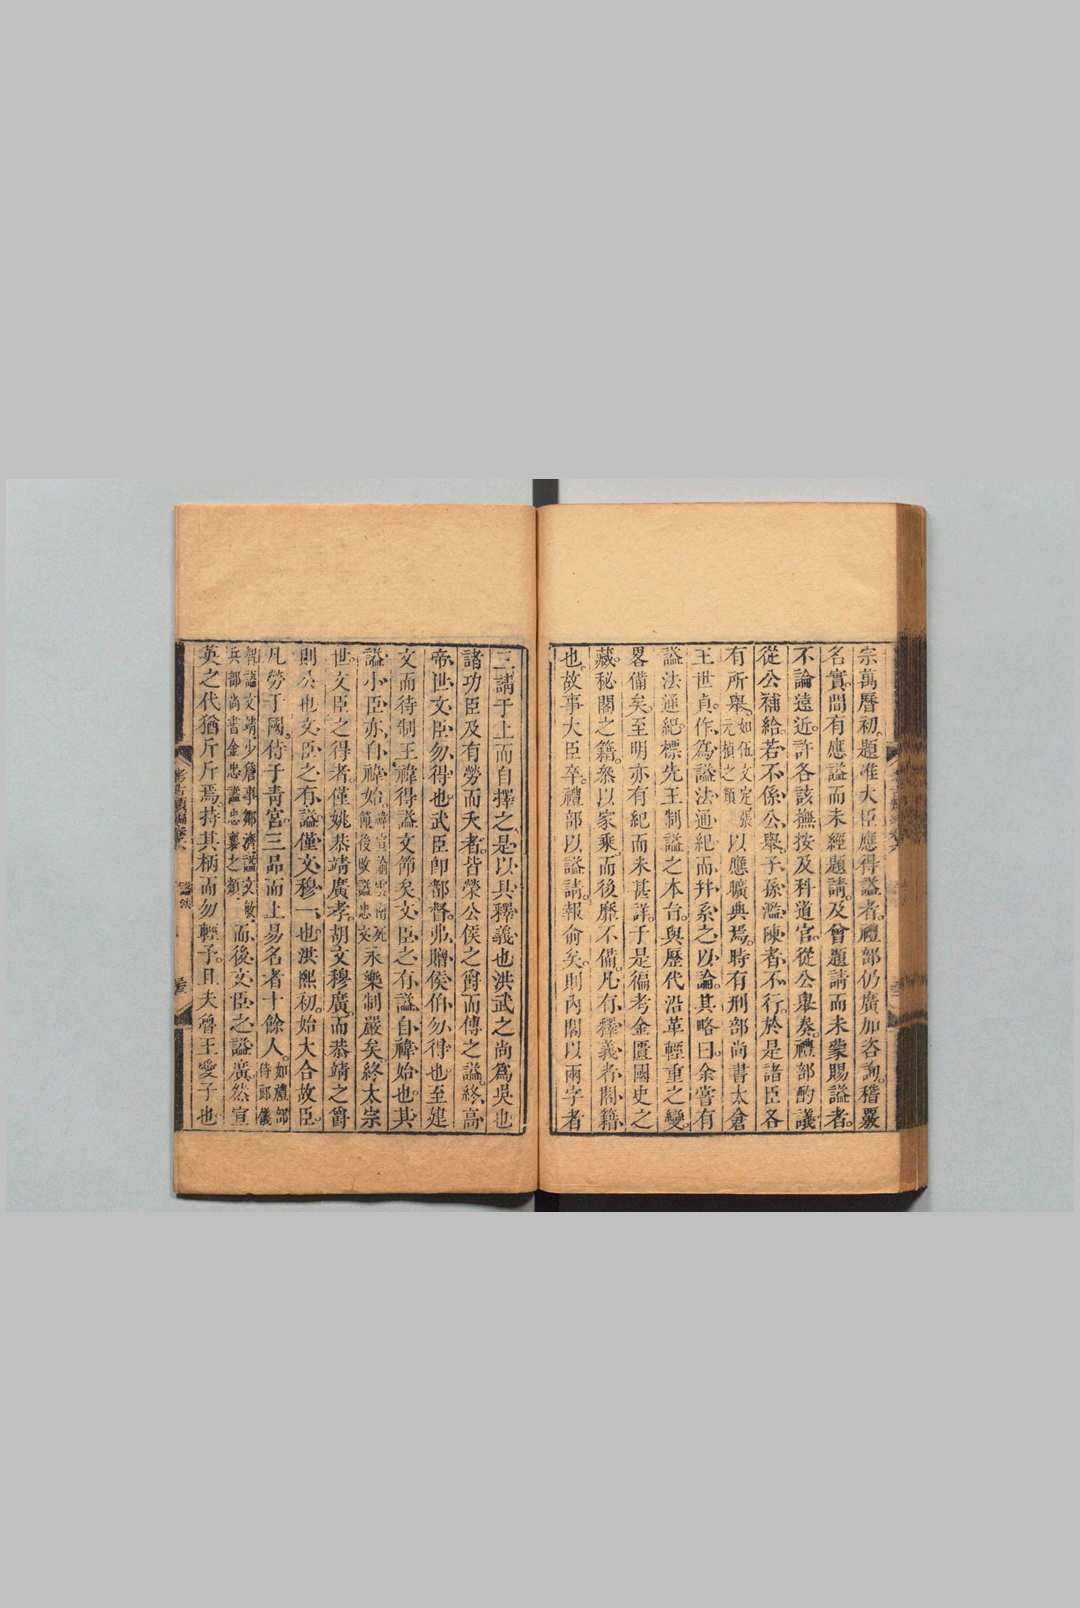 宗萬曆初題准大臣應得謚者禮部仍廣加咨詢稽覈
名實間有應謚而未經題請及曾題請而未蒙賜謚者
不論遠近許各該撫按及科道官從公舉奏禮部酌議
從公補給若不係公舉子孫濫陳者不行於是諸臣各
有所舉如伍文定張元禎之類以應曠典焉時有刑部尚書太倉
王世貞作為謚法通紀而幷系之以論其略曰余嘗有
謚法通紀標先王制謚之本旨與歷代沿革輕重之變
畧備矣至明亦有紀而未甚詳于是徧考金匱國史之
藏秘閣之籍叅以家乘而後靡不備凡有釋義者閣籍
也故事大臣卒禮部以謚請報俞矣則內閣以兩字者
三請于上而自擇之是以具釋義也洪武之尚為吳也
諸功臣及有勞而夭者皆榮公侯之爵而傳之謚終高
帝世文臣勿得也武臣卽都督弗贈侯伯勿得也至建
文而待制王褘得謚文節矣文臣之有謚自褘始也其
謚小臣亦自褘始褘宣諭雲南死節後改謚忠文永樂制嚴矣終太宗
世文臣之得者僅姚恭靖廣孝胡文穆廣而恭靖之爵
則公也文臣之有謚僅文穆一也洪熙初始大合故臣
凡勞于國侍于靑宮三品而上易名者十餘人如禮部侍郎儀
智謚文靖少詹事鄒濟謚文敏兵部尚書金忠謚忠襄之類而後文臣之謚廣然宣
英之代猶斤斤焉持其柄而勿輕予且夫魯王愛子也
考古類編卷六
謚法